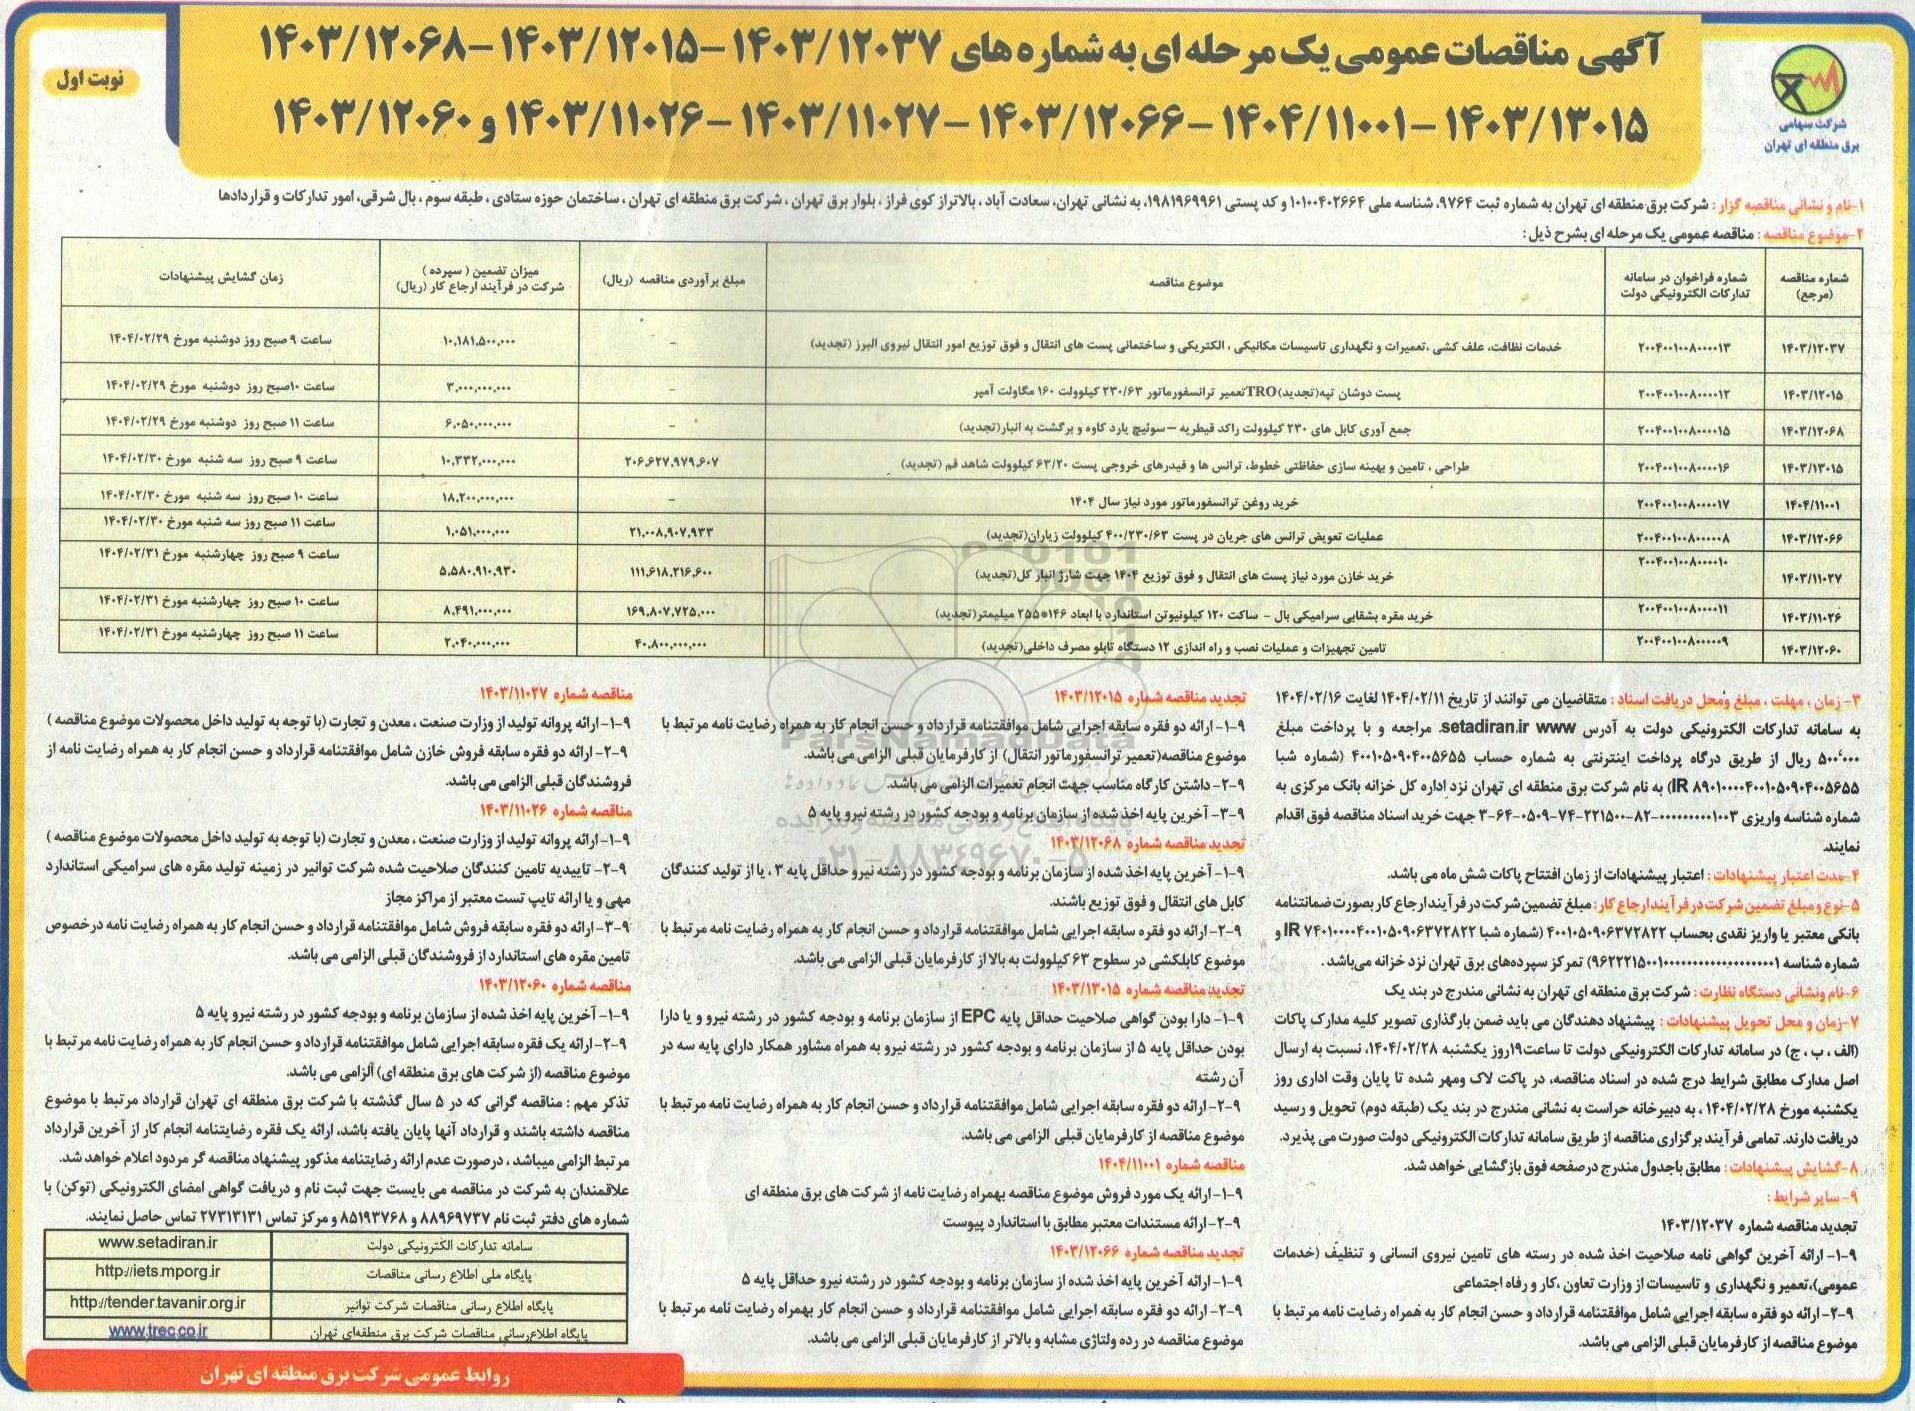 آگهی مناقصات عمومی یک مرحله ای به شماره های ۱۴۰۳/۱۲۰۳۷ –۱۴۰۳/۱۲۰۱۵ –۱۴۰۳/۱۲۰۶۸
۱۴۰۳/۱۳۰۱۵ –۱۴۰۴/۱۱۰۰۱ –۱۴۰۳/۱۲۰۶۶ –۱۴۰۳/۱۱۰۲۷ –۱۴۰۳/۱۱۰۲۶ و ۱۴۰۳/۱۲۰۶۰
نوبت اول
شرکت سهامی
برق منطقه ای تهران
۱-نام و نشانی مناقصه گزار : شرکت برق منطقه ای تهران به شماره ثبت ۹۷۶۴، شناسه ملی ۱۰۱۰۰۴۰۲۶۶۴ و کد پستی ۱۹۸۱۹۶۹۹۶۱، به نشانی تهران، سعادت آباد ، بالاتراز کوی فراز ، بلوار برق تهران ، شرکت برق منطقه ای تهران ، ساختمان حوزه ستادی ، طبقه سوم ، بال شرقی، امور تدارکات و قراردادها
۲-موضوع مناقصه : مناقصه عمومی یک مرحله ای بشرح ذیل :
شماره مناقصه (مرجع) | شماره فراخوان در سامانه تدارکات الکترونیکی دولت | موضوع مناقصه | مبلغ برآوردی مناقصه (ریال) | میزان تضمین ( سپرده ) شرکت در فرآیند ارجاع کار (ریال) | زمان گشایش پیشنهادات
۱۴۰۳/۱۲۰۳۷ | ۲۰۰۴۰۰۱۰۰۸۰۰۰۰۱۳ | خدمات نظافت، علف کشی ،تعمیرات و نگهداری تاسیسات مکانیکی ، الکتریکی و ساختمانی پست های انتقال و فوق توزیع امور انتقال نیروی البرز (تجدید) | – | ۱۰،۱۸۱،۵۰۰،۰۰۰ | ساعت ۹ صبح روز دوشنبه مورخ ۱۴۰۴/۰۲/۲۹
۱۴۰۳/۱۲۰۱۵ | ۲۰۰۴۰۰۱۰۰۸۰۰۰۰۱۲ | پست دوشان تپه(تجدید)TROتعمیر ترانسفورماتور ۲۳۰/۶۳ کیلوولت ۱۶۰ مگاولت آمپر | – | ۳،۰۰۰،۰۰۰،۰۰۰ | ساعت ۱۰صبح روز دوشنبه مورخ ۱۴۰۴/۰۲/۲۹
۱۴۰۳/۱۲۰۶۸ | ۲۰۰۴۰۰۱۰۰۸۰۰۰۰۱۵ | جمع آوری کابل های ۲۳۰ کیلوولت راکد قیطریه –سوئیچ یارد کاوه و برگشت به انبار(تجدید) | – | ۶،۰۵۰،۰۰۰،۰۰۰ | ساعت ۱۱ صبح روز دوشنبه مورخ ۱۴۰۴/۰۲/۲۹
۱۴۰۳/۱۳۰۱۵ | ۲۰۰۴۰۰۱۰۰۸۰۰۰۰۱۶ | طراحی ، تامین و بهینه سازی حفاظتی خطوط، ترانس ها و فیدرهای خروجی پست ۶۳/۲۰ کیلوولت شاهد قم (تجدید) | ۲۰۶،۶۲۷،۹۷۹،۶۰۷ | ۱۰،۳۳۲،۰۰۰،۰۰۰ | ساعت ۹ صبح روز سه شنبه مورخ ۱۴۰۴/۰۲/۳۰
۱۴۰۴/۱۱۰۰۱ | ۲۰۰۴۰۰۱۰۰۸۰۰۰۰۱۷ | خرید روغن ترانسفورماتور مورد نیاز سال ۱۴۰۴ | – | ۱۸،۲۰۰،۰۰۰،۰۰۰ | ساعت ۱۰ صبح روز سه شنبه مورخ ۱۴۰۴/۰۲/۳۰
۱۴۰۳/۱۲۰۶۶ | ۲۰۰۴۰۰۱۰۰۸۰۰۰۰۰۸ | عملیات تعویض ترانس های جریان در پست ۴۰۰/۲۳۰/۶۳ کیلوولت زیاران(تجدید) | ۲۱،۰۰۸،۹۰۷،۹۳۳ | ۱،۰۵۱،۰۰۰،۰۰۰ | ساعت ۱۱ صبح روز سه شنبه مورخ ۱۴۰۴/۰۲/۳۰
۱۴۰۳/۱۱۰۲۷ | ۲۰۰۴۰۰۱۰۰۸۰۰۰۰۱۰ | خرید خازن مورد نیاز پست های انتقال و فوق توزیع ۱۴۰۴ جهت شارژ انبار کل(تجدید) | ۱۱۱،۶۱۸،۲۱۶،۶۰۰ | ۵،۵۸۰،۹۱۰،۹۳۰ | ساعت ۹ صبح روز چهارشنبه مورخ ۱۴۰۴/۰۲/۳۱
۱۴۰۳/۱۱۰۲۶ | ۲۰۰۴۰۰۱۰۰۸۰۰۰۰۱۱ | خرید مقره بشقابی سرامیکی بال – ساکت ۱۲۰ کیلونیوتن استاندارد با ابعاد ۱۴۶*۲۵۵ میلیمتر(تجدید) | ۱۶۹،۸۰۷،۷۲۵،۰۰۰ | ۸،۴۹۱،۰۰۰،۰۰۰ | ساعت ۱۰ صبح روز چهارشنبه مورخ ۱۴۰۴/۰۲/۳۱
۱۴۰۳/۱۲۰۶۰ | ۲۰۰۴۰۰۱۰۰۸۰۰۰۰۰۹ | تامین تجهیزات و عملیات نصب و راه اندازی ۱۲ دستگاه تابلو مصرف داخلی(تجدید) | ۴۰،۸۰۰،۰۰۰،۰۰۰ | ۲،۰۴۰،۰۰۰،۰۰۰ | ساعت ۱۱ صبح روز چهارشنبه مورخ ۱۴۰۴/۰۲/۳۱
۳- زمان ، مهلت ، مبلغ ومحل دریافت اسناد : متقاضیان می توانند از تاریخ ۱۴۰۴/۰۲/۱۱ لغایت ۱۴۰۴/۰۲/۱۶
به سامانه تدارکات الکترونیکی دولت به آدرس www .setadiran.ir مراجعه و با پرداخت مبلغ
۵۰۰٬۰۰۰ ریال از طریق درگاه پرداخت اینترنتی به شماره حساب ۴۰۰۱۰۵۰۹۰۴۰۰۵۶۵۵ (شماره شبا
IR ۸۹۰۱۰۰۰۰۴۰۰۱۰۵۰۹۰۴۰۰۵۶۵۵) به نام شرکت برق منطقه ای تهران نزد اداره کل خزانه بانک مرکزی به
شماره شناسه واریزی ۳-۶۴-۰۵۰۹-۷۴-۲۲۱۵۰۰-۸۲-۰۰۰۰۰۰۰۰۰۱۰۰۳ جهت خرید اسناد مناقصه فوق اقدام
نمایند.
۴-مدت اعتبار پیشنهادات : اعتبار پیشنهادات از زمان افتتاح پاکات شش ماه می باشد.
۵-نوع و مبلغ تضمین شرکت در فرآیند ارجاع کار: مبلغ تضمین شرکت در فرآیند ارجاع کار بصورت ضمانتنامه
بانکی معتبر یا واریز نقدی بحساب ۴۰۰۱۰۵۰۹۰۶۳۷۲۸۲۲ (شماره شبا IR ۷۴۰۱۰۰۰۰۴۰۰۱۰۵۰۹۰۶۳۷۲۸۲۲ و
تمرکز سپرده‌های برق تهران نزد خزانه می‌باشد .
۶-نام ونشانی دستگاه نظارت : شرکت برق منطقه ای تهران به نشانی مندرج در بند یک
۷-زمان و محل تحویل پیشنهادات : پیشنهاد دهندگان می باید ضمن بارگذاری تصویر کلیه مدارک پاکات
(الف ، ب ، ج) در سامانه تدارکات الکترونیکی دولت تا ساعت۱۹روز یکشنبه ۱۴۰۴/۰۲/۲۸، نسبت به ارسال
اصل مدارک مطابق شرایط درج شده در اسناد مناقصه، در پاکت لاک ومهر شده تا پایان وقت اداری روز
یکشنبه مورخ ۱۴۰۴/۰۲/۲۸ ، به دبیرخانه حراست به نشانی مندرج در بند یک (طبقه دوم) تحویل و رسید
دریافت دارند. تمامی فرآیند برگزاری مناقصه از طریق سامانه تدارکات الکترونیکی دولت صورت می پذیرد.
۸-گشایش پیشنهادات : مطابق باجدول مندرج درصفحه فوق بازگشایی خواهد شد.
۹- سایر شرایط :
تجدید مناقصه شماره ۱۴۰۳/۱۲۰۳۷
۹-۱- ارائه آخرین گواهی نامه صلاحیت اخذ شده در رسته های تامین نیروی انسانی و تنظیف (خدمات
عمومی)،تعمیر و نگهداری و تاسیسات از وزارت تعاون ،کار و رفاه اجتماعی
۹-۲- ارائه دو فقره سابقه اجرایی شامل موافقتنامه قرارداد و حسن انجام کار به همراه رضایت نامه مرتبط با
موضوع مناقصه از کارفرمایان قبلی الزامی می باشد.
تجدید مناقصه شماره ۱۴۰۳/۱۲۰۱۵
۹-۱- ارائه دو فقره سابقه اجرایی شامل موافقتنامه قرارداد و حسن انجام کار به همراه رضایت نامه مرتبط با
موضوع مناقصه(تعمیر ترانسفورماتور انتقال) از کارفرمایان قبلی الزامی می باشد.
۹-۲- داشتن کارگاه مناسب جهت انجام تعمیرات الزامی می باشد.
۹-۳- آخرین پایه اخذ شده از سازمان برنامه و بودجه کشور در رشته نیرو پایه ۵
تجدید مناقصه شماره ۱۴۰۳/۱۲۰۶۸
۹-۱- آخرین پایه اخذ شده از سازمان برنامه و بودجه کشور در رشته نیرو حداقل پایه ۳ ، یا از تولید کنندگان
کابل های انتقال و فوق توزیع باشند.
۹-۲- ارائه دو فقره سابقه اجرایی شامل موافقتنامه قرارداد و حسن انجام کار به همراه رضایت نامه مرتبط با
موضوع کابلکشی در سطوح ۶۳ کیلوولت به بالا از کارفرمایان قبلی الزامی می باشد.
تجدید مناقصه شماره ۱۴۰۳/۱۳۰۱۵
۹-۱- دارا بودن گواهی صلاحیت حداقل پایه EPC از سازمان برنامه و بودجه کشور در رشته نیرو و یا دارا
بودن حداقل پایه ۵ از سازمان برنامه و بودجه کشور در رشته نیرو به همراه مشاور همکار دارای پایه سه در
آن رشته
۹-۲- ارائه دو فقره سابقه اجرایی شامل موافقتنامه قرارداد و حسن انجام کار به همراه رضایت نامه مرتبط با
موضوع مناقصه از کارفرمایان قبلی الزامی می باشد.
مناقصه شماره ۱۴۰۴/۱۱۰۰۱
۹-۱- ارائه یک مورد فروش موضوع مناقصه بهمراه رضایت نامه از شرکت های برق منطقه ای
۹-۲- ارائه مستندات معتبر مطابق با استاندارد پیوست
تجدید مناقصه شماره ۱۴۰۳/۱۲۰۶۶
۹-۱- ارائه آخرین پایه اخذ شده از سازمان برنامه و بودجه کشور در رشته نیرو حداقل پایه ۵
۹-۲- ارائه دو فقره سابقه اجرایی شامل موافقتنامه قرارداد و حسن انجام کار بهمراه رضایت نامه مرتبط با
موضوع مناقصه در رده ولتاژی مشابه و بالاتر از کارفرمایان قبلی الزامی می باشد.
مناقصه شماره ۱۴۰۳/۱۱۰۲۷
۹-۱- ارائه پروانه تولید از وزارت صنعت ، معدن و تجارت (با توجه به تولید داخل محصولات موضوع مناقصه )
۹-۲- ارائه دو فقره سابقه فروش خازن شامل موافقتنامه قرارداد و حسن انجام کار به همراه رضایت نامه از
فروشندگان قبلی الزامی می باشد.
مناقصه شماره ۱۴۰۳/۱۱۰۲۶
۹-۱- ارائه پروانه تولید از وزارت صنعت ، معدن و تجارت (با توجه به تولید داخل محصولات موضوع مناقصه )
۹-۲- تاییدیه تامین کنندگان صلاحیت شده شرکت توانیر در زمینه تولید مقره های سرامیکی استاندارد
مهی و یا ارائه تایپ تست معتبر از مراکز مجاز
۹-۳- ارائه دو فقره سابقه فروش شامل موافقتنامه قرارداد و حسن انجام کار به همراه رضایت نامه درخصوص
تامین مقره های استاندارد از فروشندگان قبلی الزامی می باشد.
مناقصه شماره ۱۴۰۳/۱۲۰۶۰
۹-۱- آخرین پایه اخذ شده از سازمان برنامه و بودجه کشور در رشته نیرو پایه ۵
۹-۲- ارائه یک فقره سابقه اجرایی شامل موافقتنامه قرارداد و حسن انجام کار به همراه رضایت نامه مرتبط با
موضوع مناقصه (از شرکت های برق منطقه ای) الزامی می باشد.
تذکر مهم : مناقصه گرانی که در ۵ سال گذشته با شرکت برق منطقه ای تهران قرارداد مرتبط با موضوع
مناقصه داشته باشند و قرارداد آنها پایان یافته باشد، ارائه یک فقره رضایتنامه انجام کار از آخرین قرارداد
مرتبط الزامی میباشد ، درصورت عدم ارائه رضایتنامه مذکور پیشنهاد مناقصه گر مردود اعلام خواهد شد.
علاقمندان به شرکت در مناقصه می بایست جهت ثبت نام و دریافت گواهی امضای الکترونیکی (توکن) با
شماره های دفتر ثبت نام ۸۸۹۶۹۷۳۷ و ۸۵۱۹۳۷۶۸ و مرکز تماس ۲۷۳۱۳۱۳۱ تماس حاصل نمایند.
سامانه تدارکات الکترونیکی دولت | www.setadiran.ir
پایگاه ملی اطلاع رسانی مناقصات | http://iets.mporg.ir
پایگاه اطلاع رسانی مناقصات شرکت توانیر | http://tender.tavanir.org.ir
پایگاه اطلاع‌رسانی مناقصات شرکت برق منطقه‌ای تهران | www.trec.co.ir
روابط عمومی شرکت برق منطقه ای تهران
۰۲۱-۸۸۳۴۹۶۷۰-۵